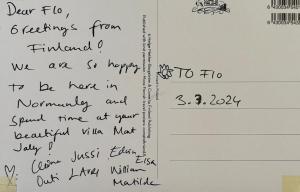 Dear Flo,
Greetings from
Finland!
We are so happy
to be here in
Normandy and
spend time at your
beautiful Villa Mat
Jaly!
Jussi Edvin Elsa
Outi William
Matilde
TO Flo
3.7.2024